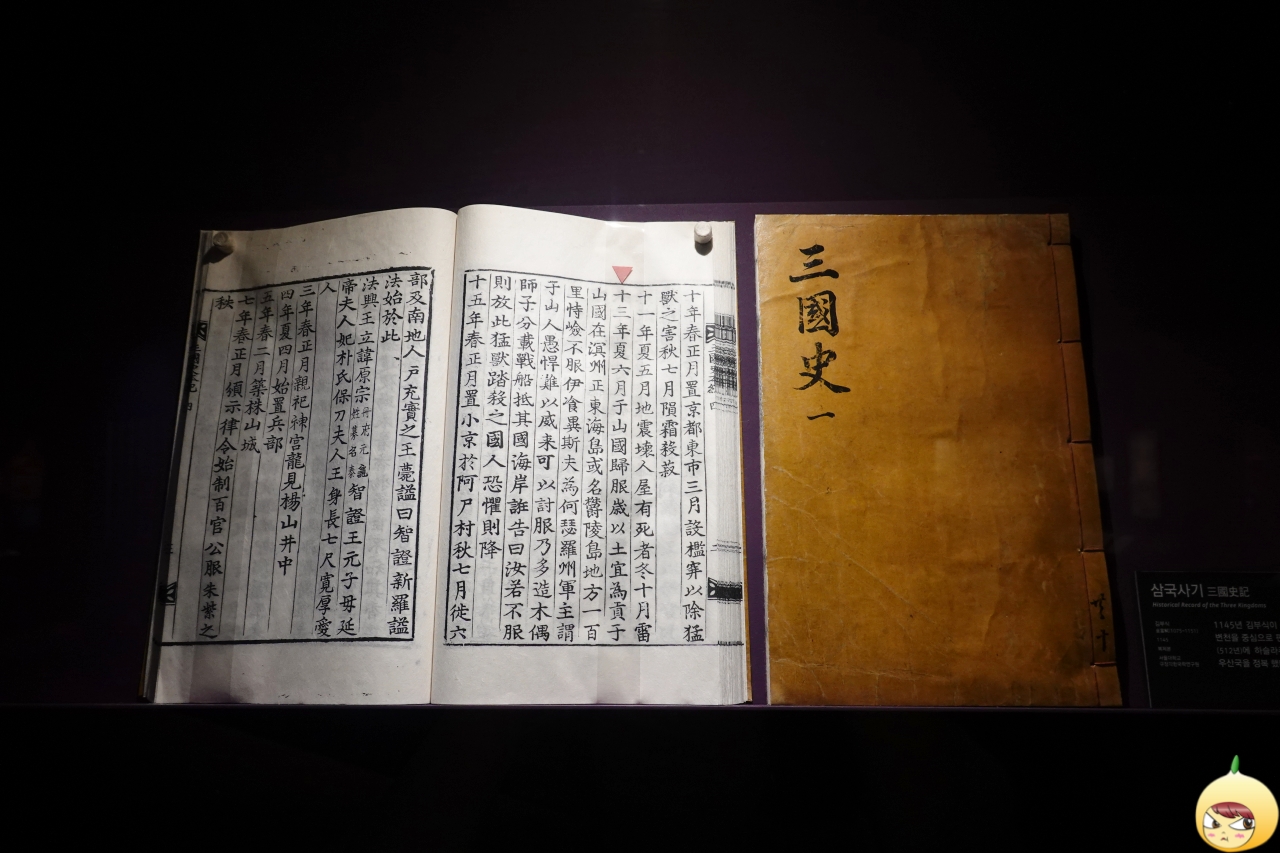 十年春正月置京都東市三月設檻穽以除猛
獸之害秋七月隕霜殺菽
十一年夏五月地震壞人屋有死者冬十月雷
十三年夏六月于山國歸服歲以土宜為貢于
山國在溟州正東海島或名鬱陵島地方一百
里恃嶮不服伊飡異斯夫為何瑟羅州軍主謂
于山人愚悍難以威来可以討服乃多造木偶
師子分載戰船抵其國海岸誑告曰汝若不服
則放此猛獸踏殺之國人恐懼則降
十五年春正月置小京於阿尸村秋七月徙六
部及南地人戶充實之王薨諡曰智證新羅諡
法始於此
法興王立諱原宗 智證王元子母延
帝夫人妃朴氏保刀夫人王身長七尺寬厚愛
人
三年春正月親祀神宮龍見楊山井中
四年夏四月始置兵部
五年春二月築株山城
七年春正月頒示律令始制百官公服朱紫之
秩
三國史一
삼국사기 三國史記
Historical Record of the Three Kingdoms
김부식
1145년 김부식이
변천을 중심으로
(512년)에 하슬라
우산국을 정복